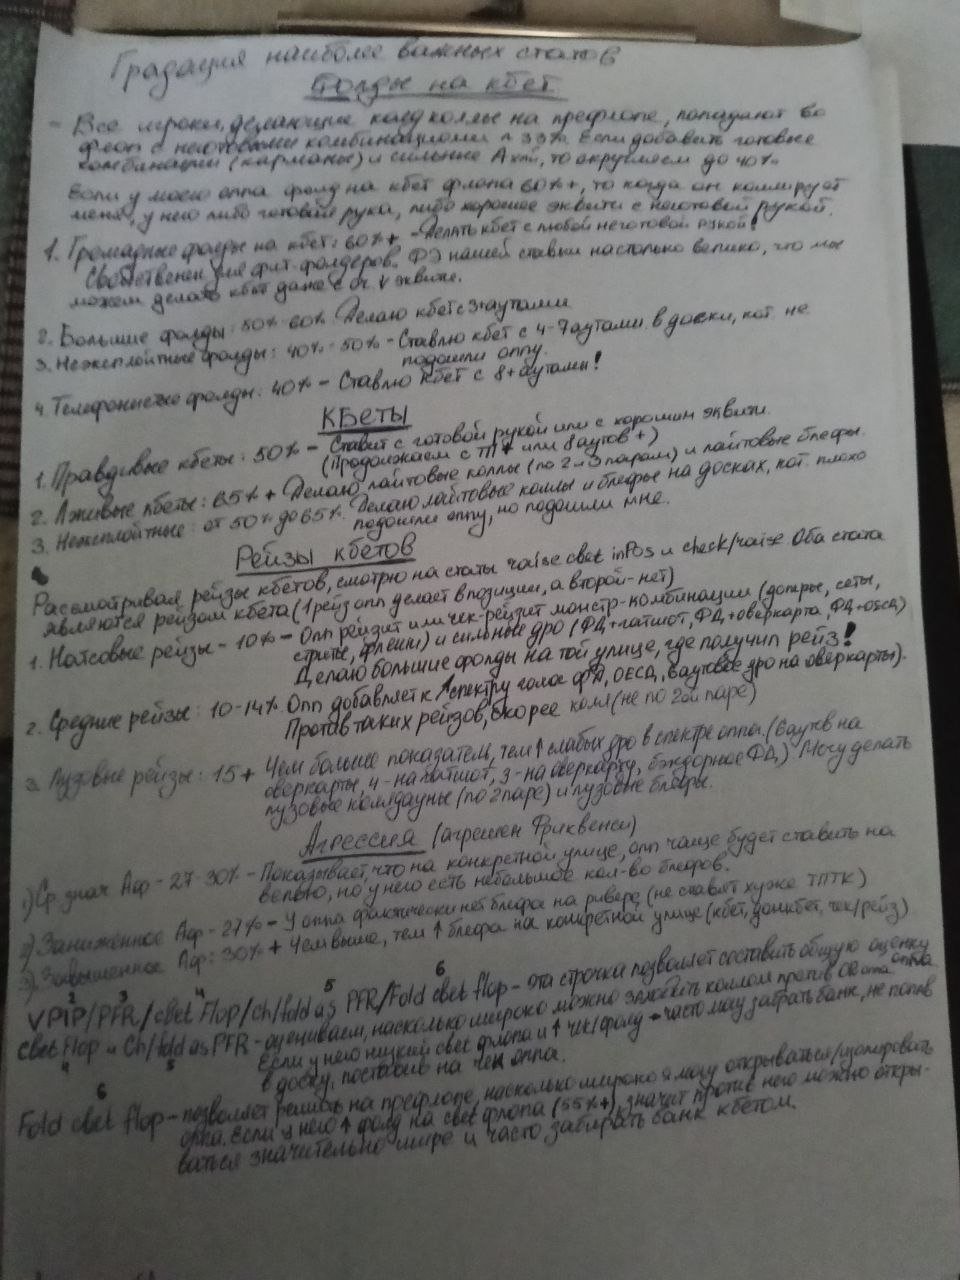 Градация наиболее важных статов
Фолды на кбет
- Все игроки, делающие колд коллы на префлопе, попадают во
флоп с неготовыми комбинациями ≈ 33%. Если добавить готовые
комбинации (карманы) и сильные A хай, то округляем до 40%
Если у моего оппа фолд на кбет флопа 60%+, то когда он коллирует
меня, у него либо готовая рука, либо хорошее эквити с неготовой рукой.
1. Громадные фолды на кбет: 60%+ - Делать кбет с любой неготовой рукой!
Свойственен для фит-фолдеров. ФЭ нашей ставки настолько велико, что мы
можем делать кбет даже с оч. ↓ эквити.
2. Большие фолды: 50%-60% - Делаю кбет с 3+ аутами
3. Неэксплойтные фолды: 40%-50% - Ставлю кбет с 4-7 аутами в доски, кот. не
подошли оппу.
4. Телефонистые фолды: 40% - Ставлю кбет с 8+ аутами!
КБеты
1. Правдивые кбеты: 50% - Ставит с готовой рукой или с хорошим эквити.
(Продолжаем с ТП+ или 8 аутов+)
2. Лживые кбеты: 65%+ Делаю лайтовые коллы (по 2 и 3 парам) и лайтовые блефы.
3. Неэксплойтные: от 50% до 65%. Делаю лайтовые коллы и блефы на досках, кот. плохо
подошли оппу, но подошли мне.
Рейзы кбетов
Рассматривая рейзы кбетов, смотрю на статы raise cbet inPos и check/raise. Оба стата
являются рейзом кбета (1 рейз опп делает в позиции, а второй - нет)
1. Натсовые рейзы - 10% - Опп рейзит или чек-рейзит монстр-комбинации (допры, сеты,
стриты, флеши) и сильные дро (ФД+гатшот, ФД+оверкарта, ФД+оесд)
Делаю большие фолды на той улице, где получил рейз!
2. Средние рейзы: 10-14% Опп добавляет к ↑ спектру голое ФД, ОЕСД, 6 аутовые дро на оверкарты).
Против таких рейзов, скорее колл (не по 2ой паре)
3. Лузовые рейзы: 15+ Чем больше показатель, тем ↑ слабых дро в спектре оппа. (6 аутов на
оверкарты, 4-на гатшот, 3-на оверкарту, бэкдорное ФД). Могу делать
лузовые коллдауны (по 2 паре) и лузовые блефы.
Агрессия (агрешен Фриквенси)
1) Ср. знач Афр - 27-30% - Показывает, что на конкретной улице, опп чаще будет ставить на
велью, но у него есть небольшое кол-во блефов.
2) Заниженное Афр - 27% - У оппа фактически нет блефа на ривере (не ставят хуже ТПТК)
3) Завышенное Афр: 30%+ Чем выше, тем ↑ блефа на конкретной улице (кбет, донкбет, чек/рейз)
2 3 4 5 6
VPIP/PFR/cbet Flop/Ch/fold as PFR/Fold cbet flop - эта строчка позволяет составить общую оценку оппа
cbet Flop и Ch/fold as PFR - оцениваем, насколько широко можно защищать коллом против OR оппа.
4 5
Если у него низкий cbet флопа и ↑ чек/фолд → часто могу забрать банк, не попав
в доску, поставив на чек оппа.
6
Fold cbet flop - позволяет решить на префлопе, насколько широко я могу открываться/изолировать
оппа. Если у него ↑ фолд на cbet флопа (55%+), значит против него можно откры-
ваться значительно шире и часто забирать банк кбетом.